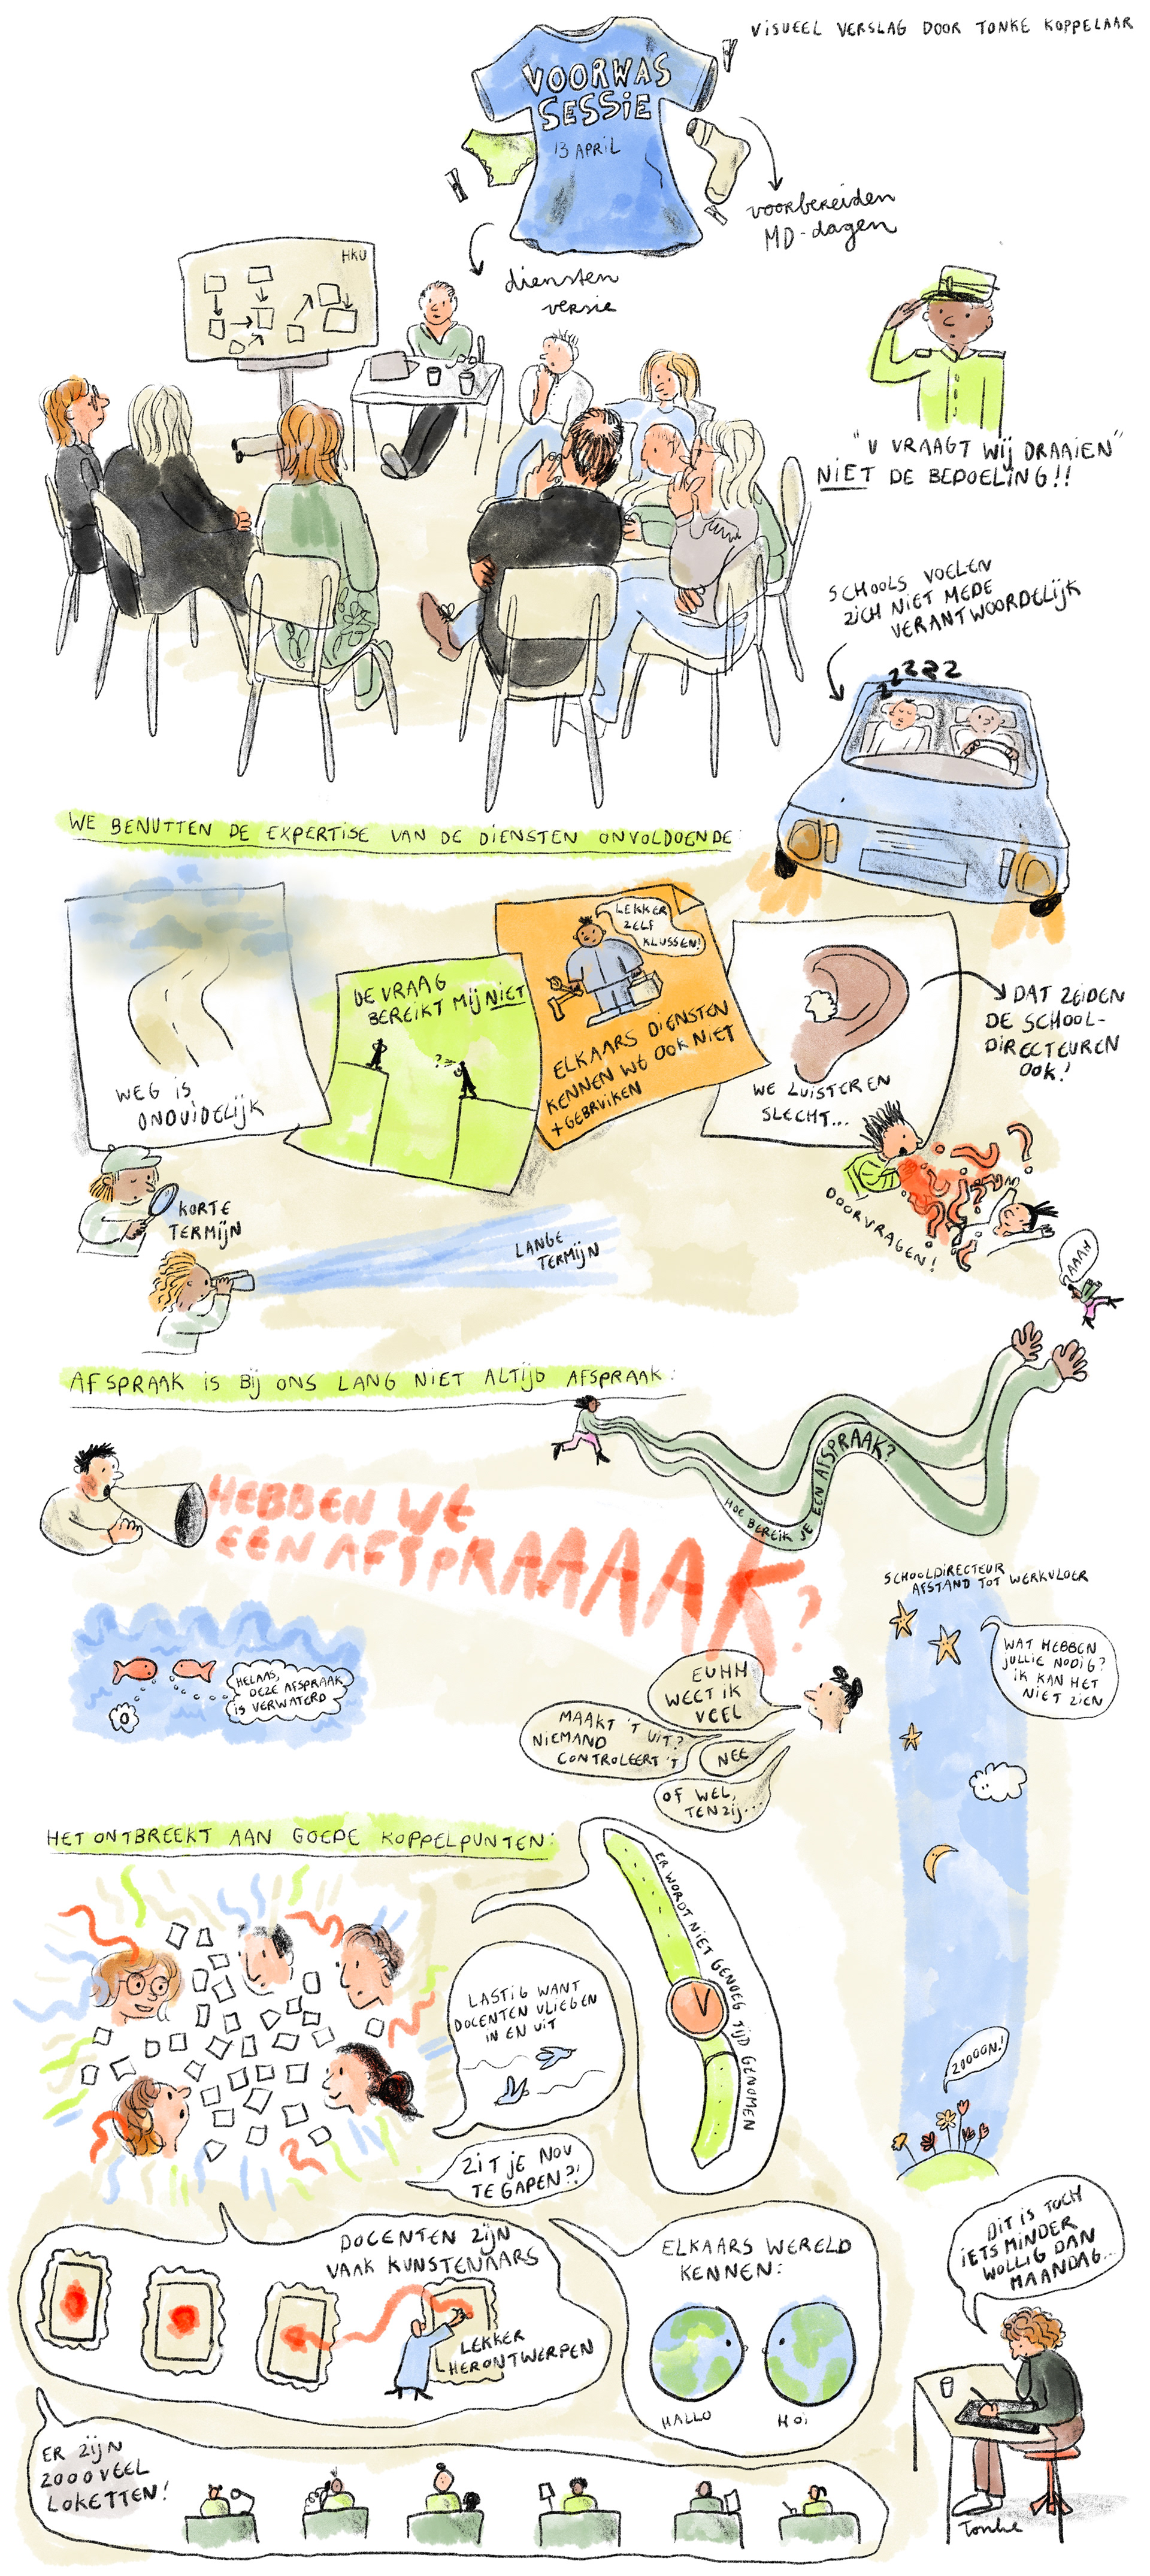 VISUEEL VERSLAG DOOR TONKE KOPPELAAR
VOORWAS
SESSIE
13 APRIL
voorbereiden
MD-dagen
diensten
versie
HKU
"U VRAAGT WIJ DRAAIEN"
NIET DE BEDOELING!!
SCHOOLS VOELEN
ZICH NIET MEDE
VERANTWOORDELIJK
ZZZZZZ
WE BENUTTEN DE EXPERTISE VAN DE DIENSTEN ONVOLDOENDE:
WEG IS
ONDUIDELIJK
DE VRAAG
BEREIKT MIJ NIET
?
LEKKER
ZELF
KLUSSEN!
ELKAARS DIENSTEN
KENNEN WE OOK NIET
+ GEBRUIKEN
WE LUISTEREN
SLECHT...
DAT ZEIDEN
DE SCHOOL-
DIRECTEUREN
OOK!
KORTE
TERMIJN
LANGE
TERMIJN
DOORVRAGEN!
AAAH
AFSPRAAK IS BIJ ONS LANG NIET ALTIJD AFSPRAAK:
HOE BEREIK JE EEN AFSPRAAK?
HEBBEN WE
EEN AFSPRAAAAK?
HELAAS,
DEZE AFSPRAAK
IS VERWATERD
EUHH
WEET IK
VEEL
MAAKT 'T UIT?
NIEMAND
CONTROLEERT 'T
NEE
OF WEL,
TENZIJ...
SCHOOLDIRECTEUR
AFSTAND TOT WERKVLOER
WAT HEBBEN
JULLIE NODIG?
IK KAN HET
NIET ZIEN
ZOOOON!
HET ONTBREEKT AAN GOEDE KOPPELPUNTEN:
ER WORDT NIET GENOEG TIJD GENOMEN
LASTIG WANT
DOCENTEN VLIEGEN
IN EN UIT
ZIT JE NOU
TE GAPEN?!
DOCENTEN ZIJN
VAAK KUNSTENAARS
LEKKER
HERONTWERPEN
ELKAARS WERELD
KENNEN:
HALLO
HOI
DIT IS TOCH
IETS MINDER
WOLLIG DAN
MAANDAG...
ER ZIJN
ZOOOVEEL
LOKETTEN!
Tonke